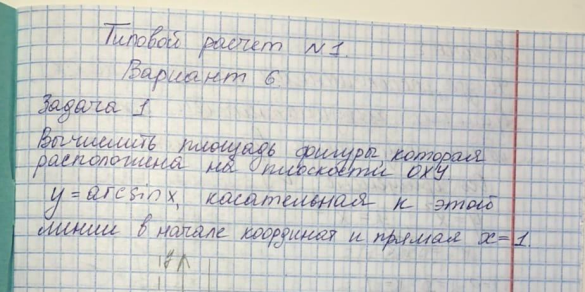 Типовой расчет N1.
Вариант 6
Задача 1
Вычислить площадь фигуры, которая
расположена на плоскости OXY
y = arcsin x, касательная к этой
линии в начале координат и прямая x=1
y